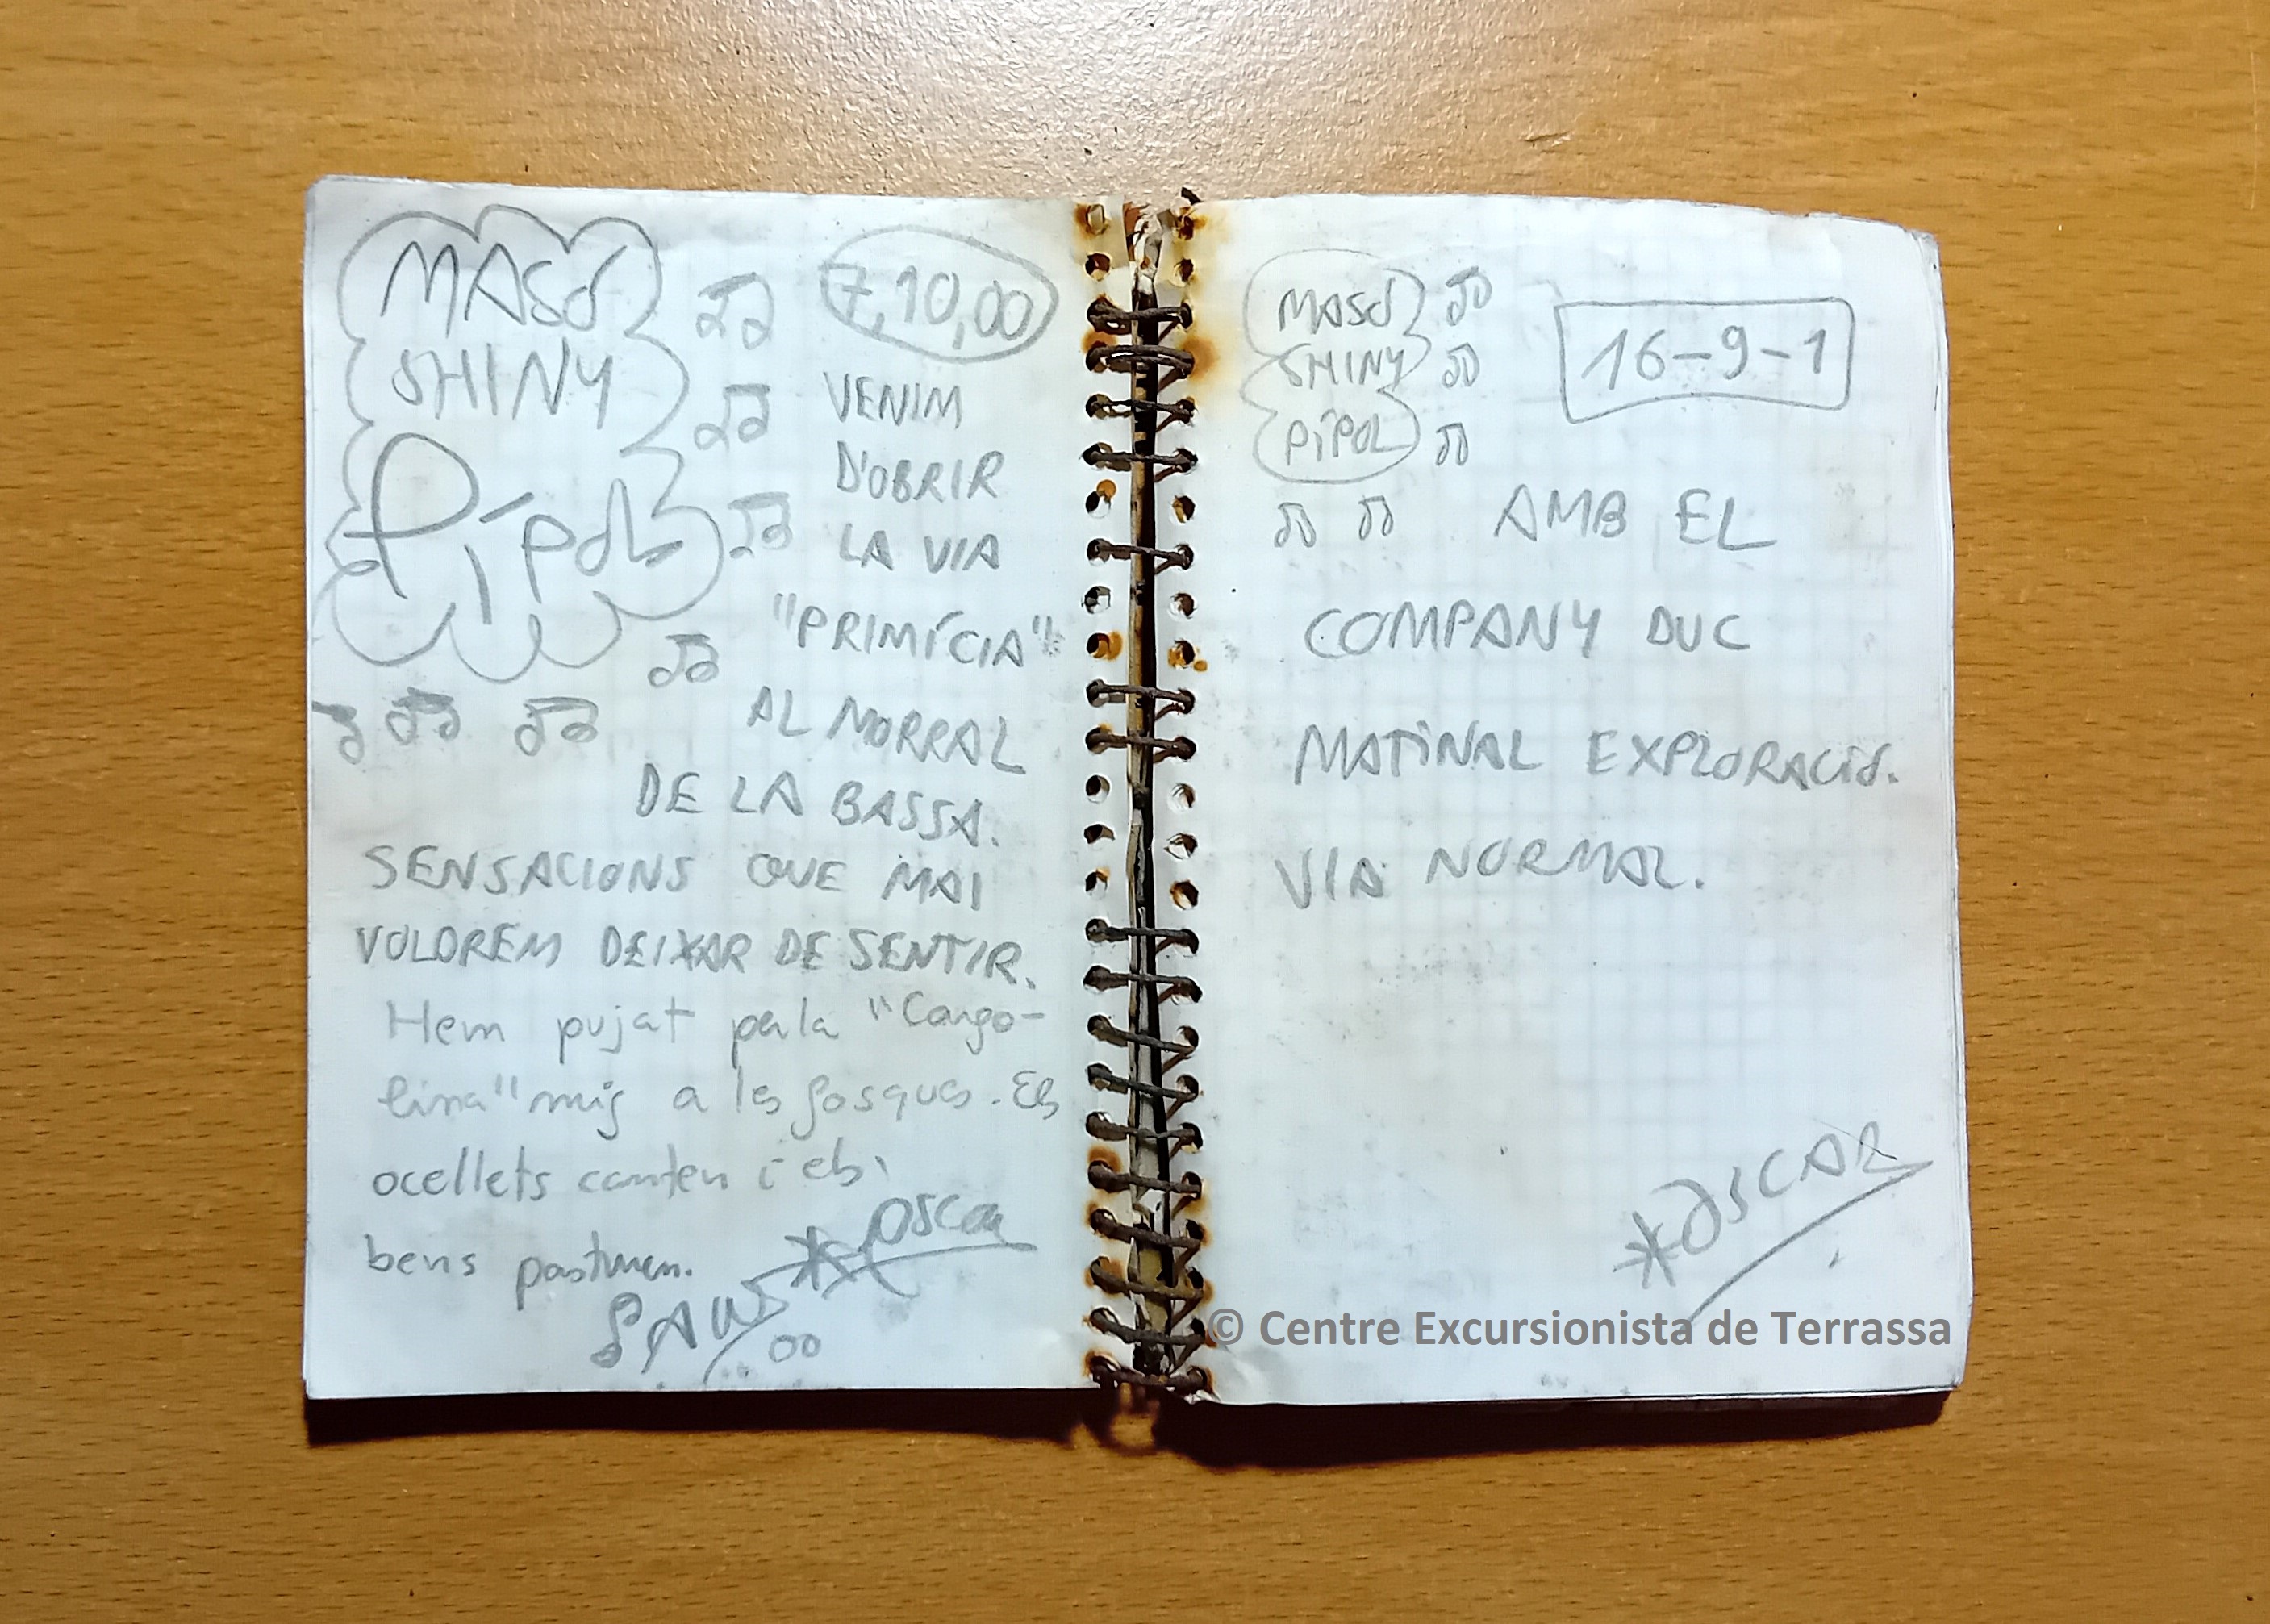 MASÓ
SHINY
PÍPOL
7,10,00
VENIM
D'OBRIR
LA VIA
"PRIMÍCIA"
AL MORRAL
DE LA BASSA.
SENSACIONS QUE MAI
VOLDREM DEIXAR DE SENTIR.
Hem pujat per la "Cargo-
lina" mig a les fosques. Els
ocellets canten i els
bens pasturen.
OSCAR
MASÓ
SHINY
PÍPOL
16-9-1
AMB EL
COMPANY DUC
MATINAL EXPLORACIÓ.
VIA NORMAL.
OSCAR
© Centre Excursionista de Terrassa